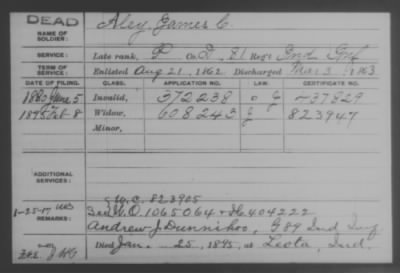 DEAD
NAME OF SOLDIER: Aley, James C.
SERVICE: Late rank, P Co. I, 81 Reg't Ind Inf
TERM OF SERVICE: Enlisted Aug 21, 1862. Discharged Mar 3, 1863
DATE OF FILING. CLASS. APPLICATION NO. LAW. CERTIFICATE NO.
1880 June 5 Invalid, 372238 237829
1895 Feb 8 Widow, 608243 823947
Minor,
ADDITIONAL SERVICES:
W.C. 823905
1-25-17 3rd W.O. 1065064 404222
REMARKS: Andrew J G 89 Ind Inf
Died Jan. 25, 1895, at Leota, Ind.